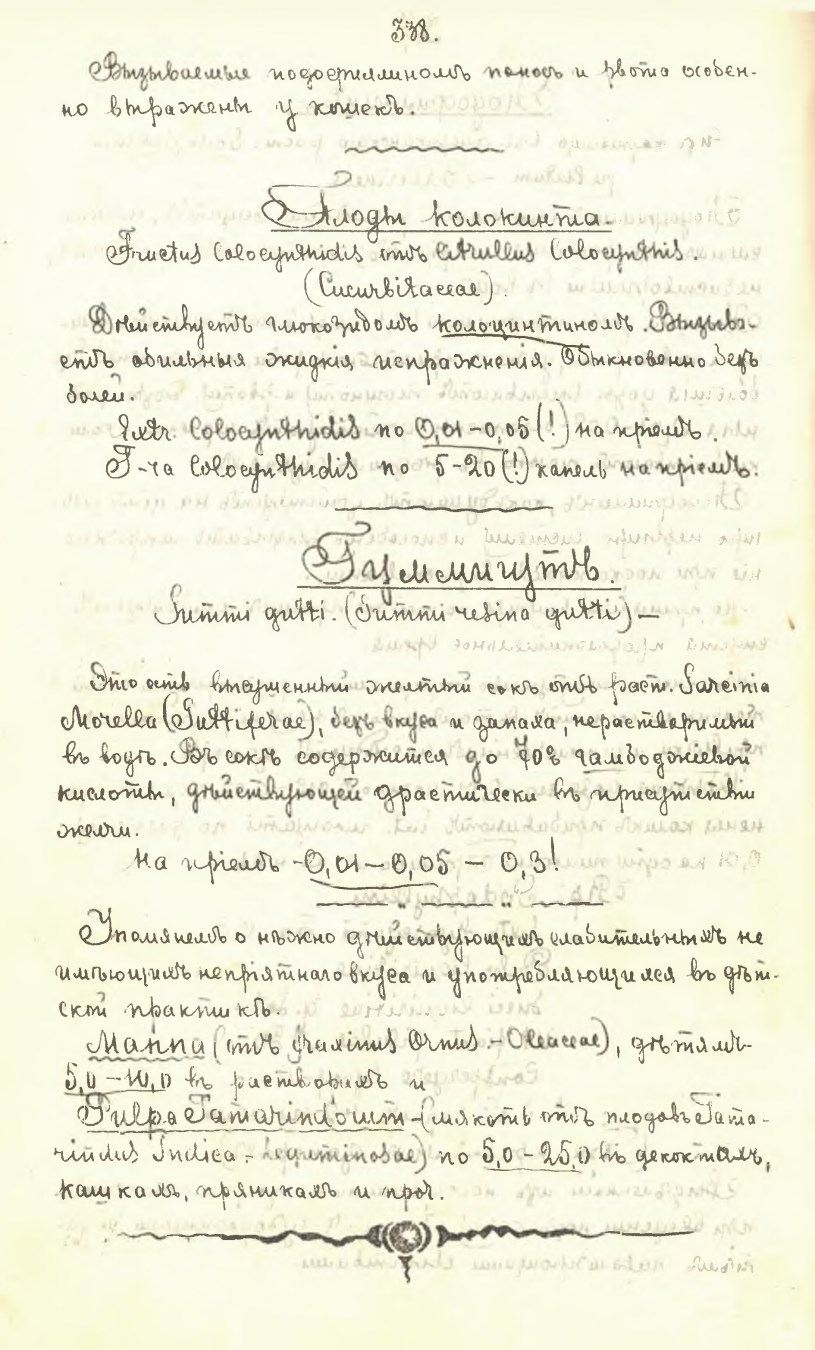 338.
Вызываемые подофиллиномъ поносъ и рвота особен-
но выражены у кошекъ.
Плоды колокинта.
Fructus Colocynthidis отъ Citrullus Colocynthis.
(Cucurbitaceae).
Дѣйствуетъ глюкозидомъ колоцинтиномъ. Вызыва-
етъ обильныя жидкія испражненія. Обыкновенно безъ
болей.
Extr. Colocynthidis по 0,01-0,05(!) на пріемъ.
T-ra Colocynthidis по 5-20(!) капель на пріемъ.
Гуммигутъ.
Gummi gutti. (Gummi resina gutti) —
Это есть высушенный желтый сокъ отъ раст. Garcinia
Morella (Guttiferae), безъ вкуса и запаха, нерастворимый
въ водѣ. Въ сокѣ содержится до 70% гамбоджіевой
кислоты, дѣйствующей драстически въ присутствіи
желчи.
На пріемъ - 0,01 — 0,05 — 0,3!
Упомянемъ о нѣжно дѣйствующихъ слабительныхъ не
имѣющихъ непріятнаго вкуса и употребляющихся въ дѣт-
ской практикѣ.
Манна (отъ Fraxinus Ornus - Oleaceae), дѣтямъ
5,0 - 10,0 въ растворахъ и
Pulpa Tamarindorum - (мякоть отъ плодовъ Tama-
rindus Indica - Leguminosae) по 5,0 - 25,0 въ декоктахъ,
кашкахъ, пряникахъ и проч.